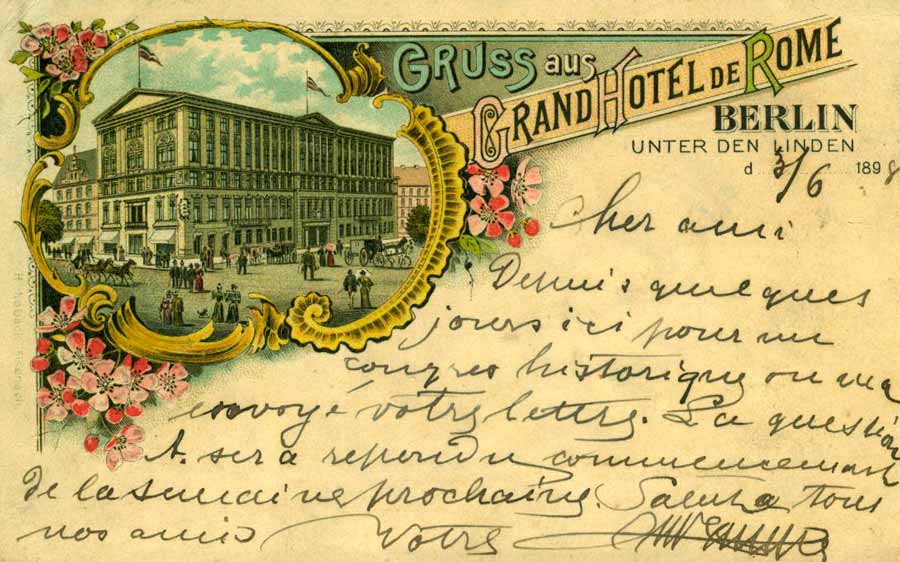 GRUSS aus
GRAND HOTEL DE ROME
BERLIN
UNTER DEN LINDEN
d 3/6 1898
Cher ami
Depuis quelques
jours ici pour un
congres historique on m'a
envoyé votre lettre. La question
A. sera repondu commencement
de la semaine prochaine. Salut a tous
nos amis Votre